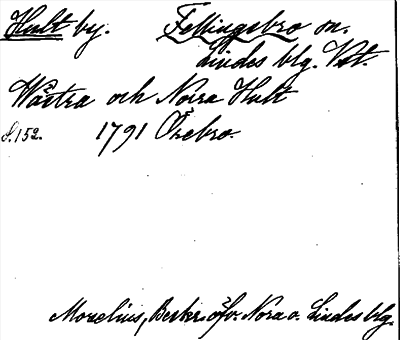 Hult by. Fellingsbro sn.
Lindes blg. Vstl.
Wästra och Norra Hult
S. 152. 1791 Örebro.
Morelius, Beskr. öfv. Nora o. Lindes blg.